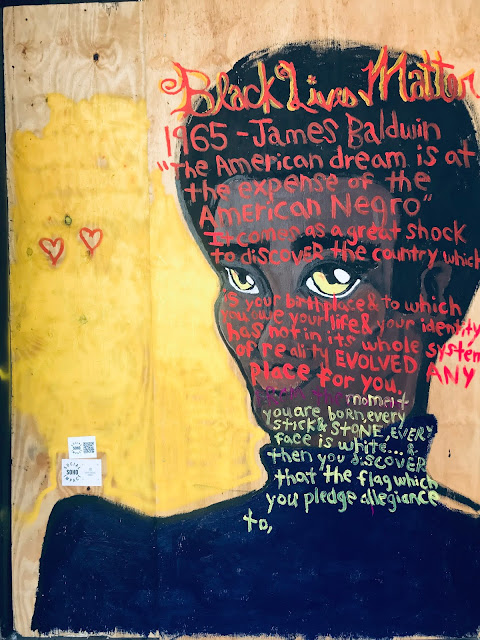 Black Lives Matter
1965 - James Baldwin
"The American dream is at
the expense of the
American Negro"
It comes as a great shock
to discover the country which
is your birthplace & to which
you owe your life & your identity
has not in its whole system
of reality EVOLVED ANY
place for you.
the moment
you are born, every
stick & STONE, EVERY
face is white...&
then you discover
that the flag which
you pledge allegiance
to,
SOHO
SOCIAL
SOHO
IMPACT